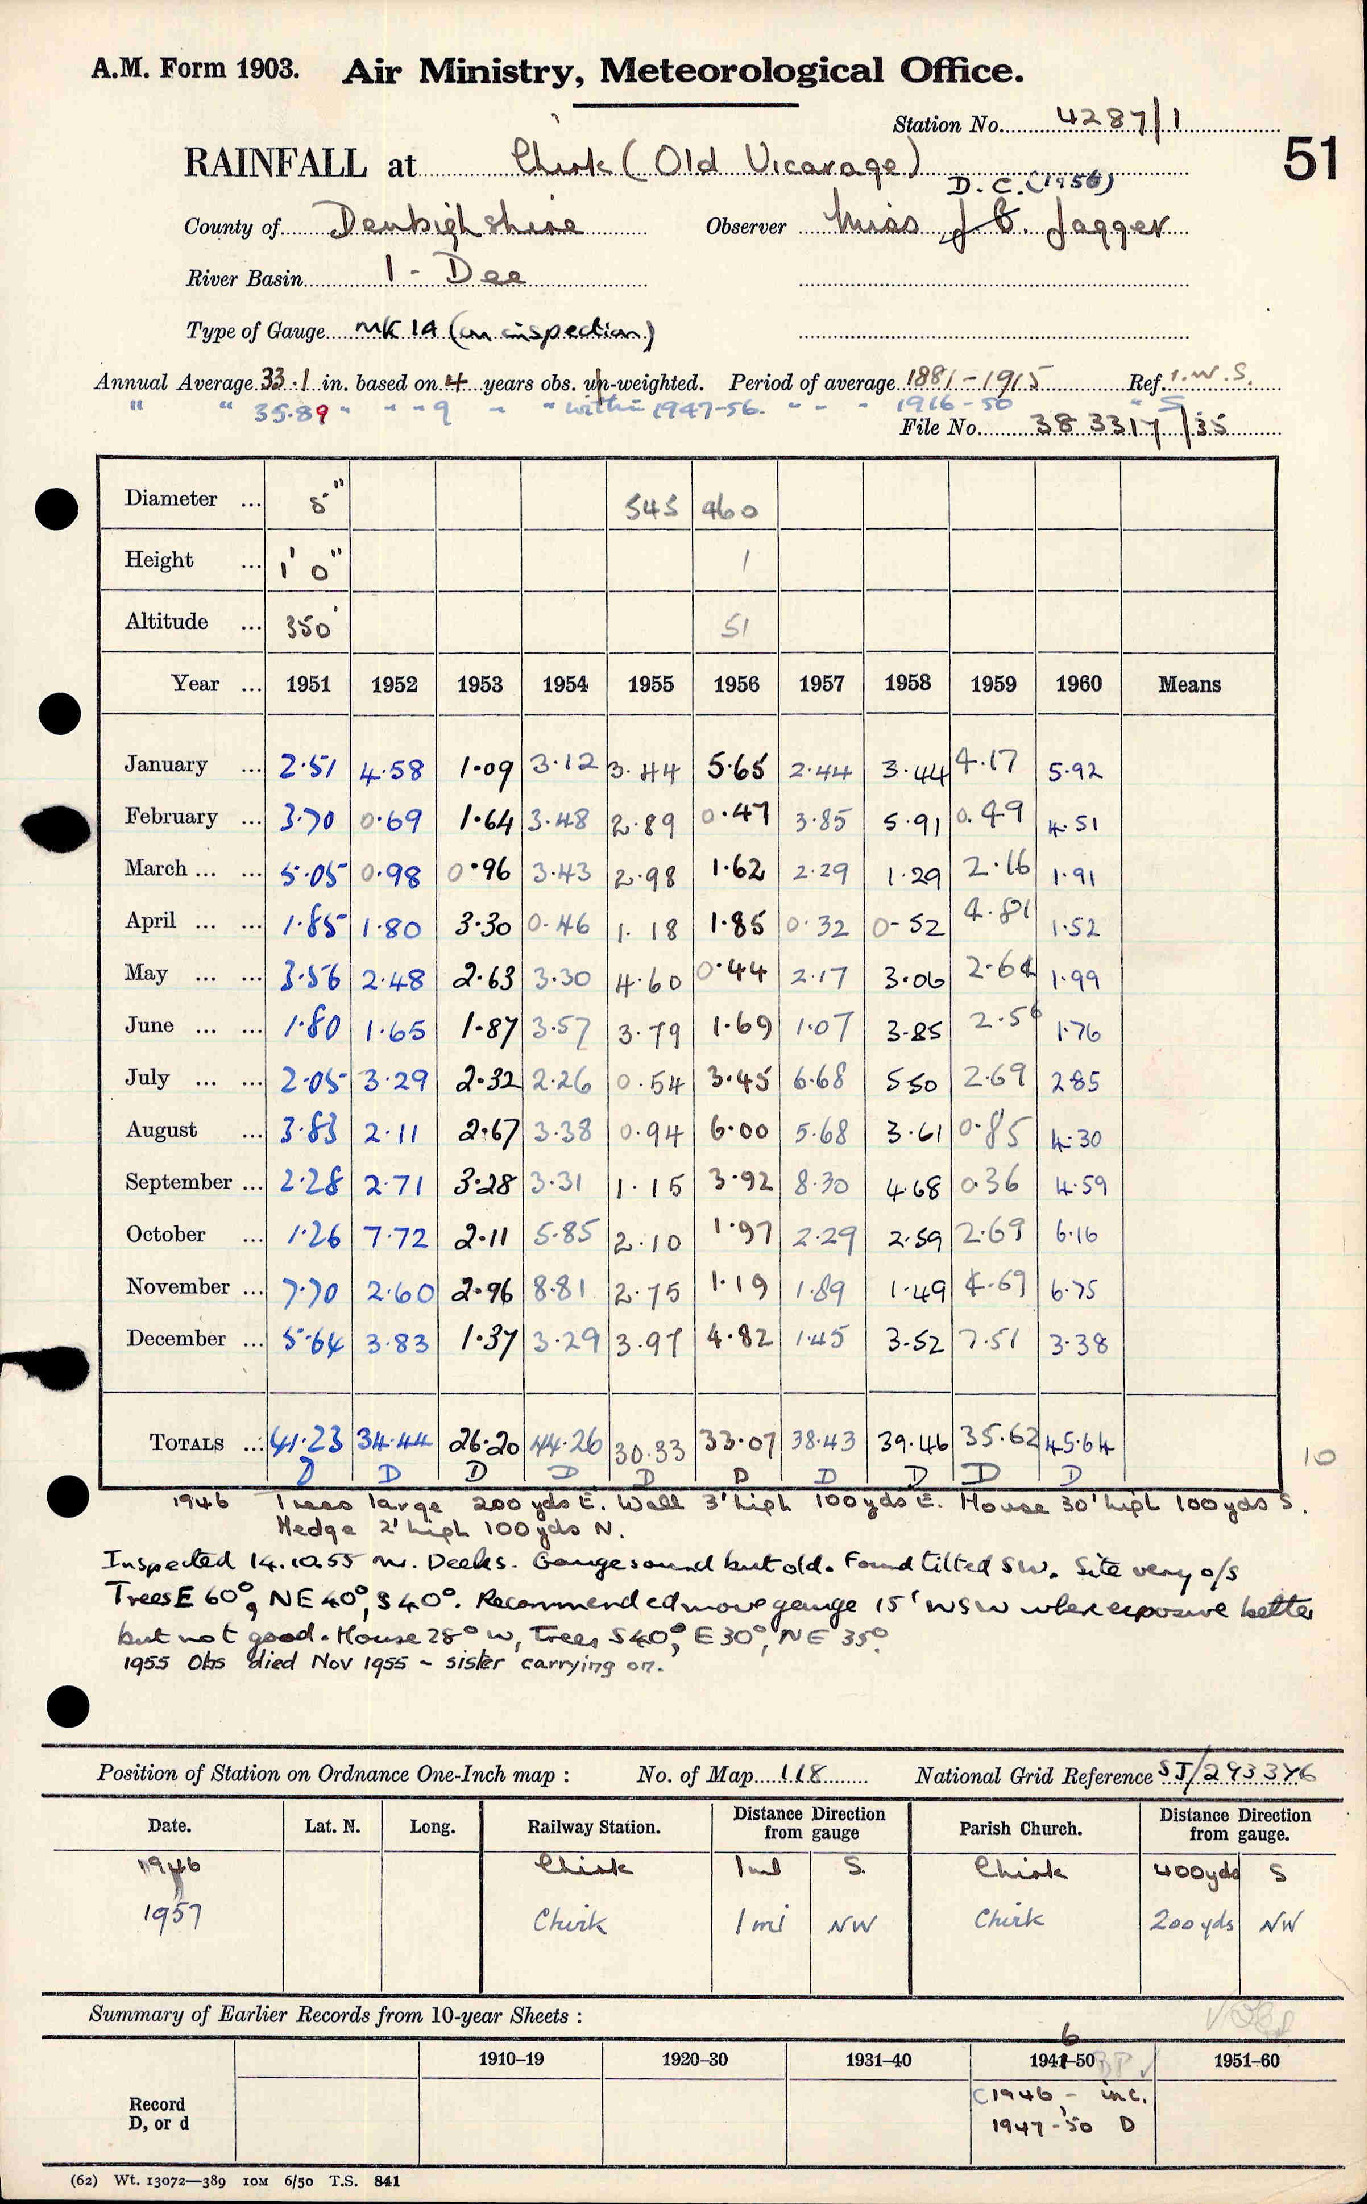 A.M. Form 1903. Air Ministry, Meteorological Office.
Station No. 4287/1
51
RAINFALL at Chirk (Old Vicarage)
D. C. (1956)
County of Denbighshire Observer Miss J B. Jagger
River Basin 1 - Dee
Type of Gauge MK 1A (on inspection)
Annual Average 33.1 in. based on 4 years obs. un-weighted. Period of average 1881-1915 Ref. I.W.S.
" " 35.89 " " " 9 " " within 1947-56. " " " 1916-50 " S
File No. 383317/35
Diameter ... 5" 545 960
Height ... 1' 0" 1
Altitude ... 350' 51
Year ... 1951 1952 1953 1954 1955 1956 1957 1958 1959 1960 Means
January ... 2.51 4.58 1.09 3.12 3.44 5.65 2.44 3.44 4.17 5.92
February ... 3.70 0.69 1.64 3.48 2.89 0.47 3.85 5.91 0.49 4.51
March ... ... 5.05 0.98 0.96 3.43 2.98 1.62 2.29 1.29 2.16 1.91
April ... ... 1.85 1.80 3.30 0.46 1.18 1.85 0.32 0.52 4.81 1.52
May ... ... 3.56 2.48 2.63 3.30 4.60 0.44 2.17 3.06 2.64 1.99
June ... ... 1.80 1.65 1.87 3.57 3.79 1.69 1.07 3.85 2.56 1.76
July ... ... 2.05 3.29 2.32 2.26 0.54 3.45 6.68 5.50 2.69 2.85
August ... 3.83 2.11 2.67 3.38 0.94 6.00 5.68 3.61 0.85 4.30
September ... 2.28 2.71 3.28 3.31 1.15 3.92 8.30 4.68 0.36 4.59
October ... 1.26 7.72 2.11 5.85 2.10 1.97 2.29 2.59 2.69 6.16
November ... 7.70 2.60 2.96 8.81 2.75 1.19 1.89 1.49 4.69 6.75
December ... 5.64 3.83 1.37 3.29 3.97 4.82 1.45 3.52 7.51 3.38
TOTALS ... 41.23 34.44 26.20 44.26 30.33 33.07 38.43 39.46 35.62 45.64
D D D D D D D D D D
10
1946 Trees large 200 yds E. Wall 3' high 100 yds E. House 30' high 100 yds S.
Hedge 2' high 100 yds N.
Inspected 14.10.55 Mr. Deeks. Gauge sound but old. Found tilted SW. Site very o/s
Trees E 60°, NE 40°, S 40°. Recommended move gauge 15' WSW where exposure better
but not good. House 28° W, Trees S 40°, E 30°, NE 35°.
1955 Obs died Nov 1955 - sister carrying on.
Position of Station on Ordnance One-Inch map : No. of Map 118 National Grid Reference SJ/293376
Date. Lat. N. Long. Railway Station. Distance Direction from gauge Parish Church. Distance Direction from gauge.
1946 Chirk 1 ml S. Chirk 400 yds S
1957 Chirk 1 mi NW Chirk 200 yds NW
Summary of Earlier Records from 10-year Sheets :
6
1910–19 1920–30 1931–40 1941–50 1951–60
Record
D, or d
(1946 - inc.
1947-50 D
(62) Wt. 13072—389 10M 6/50 T.S. 841